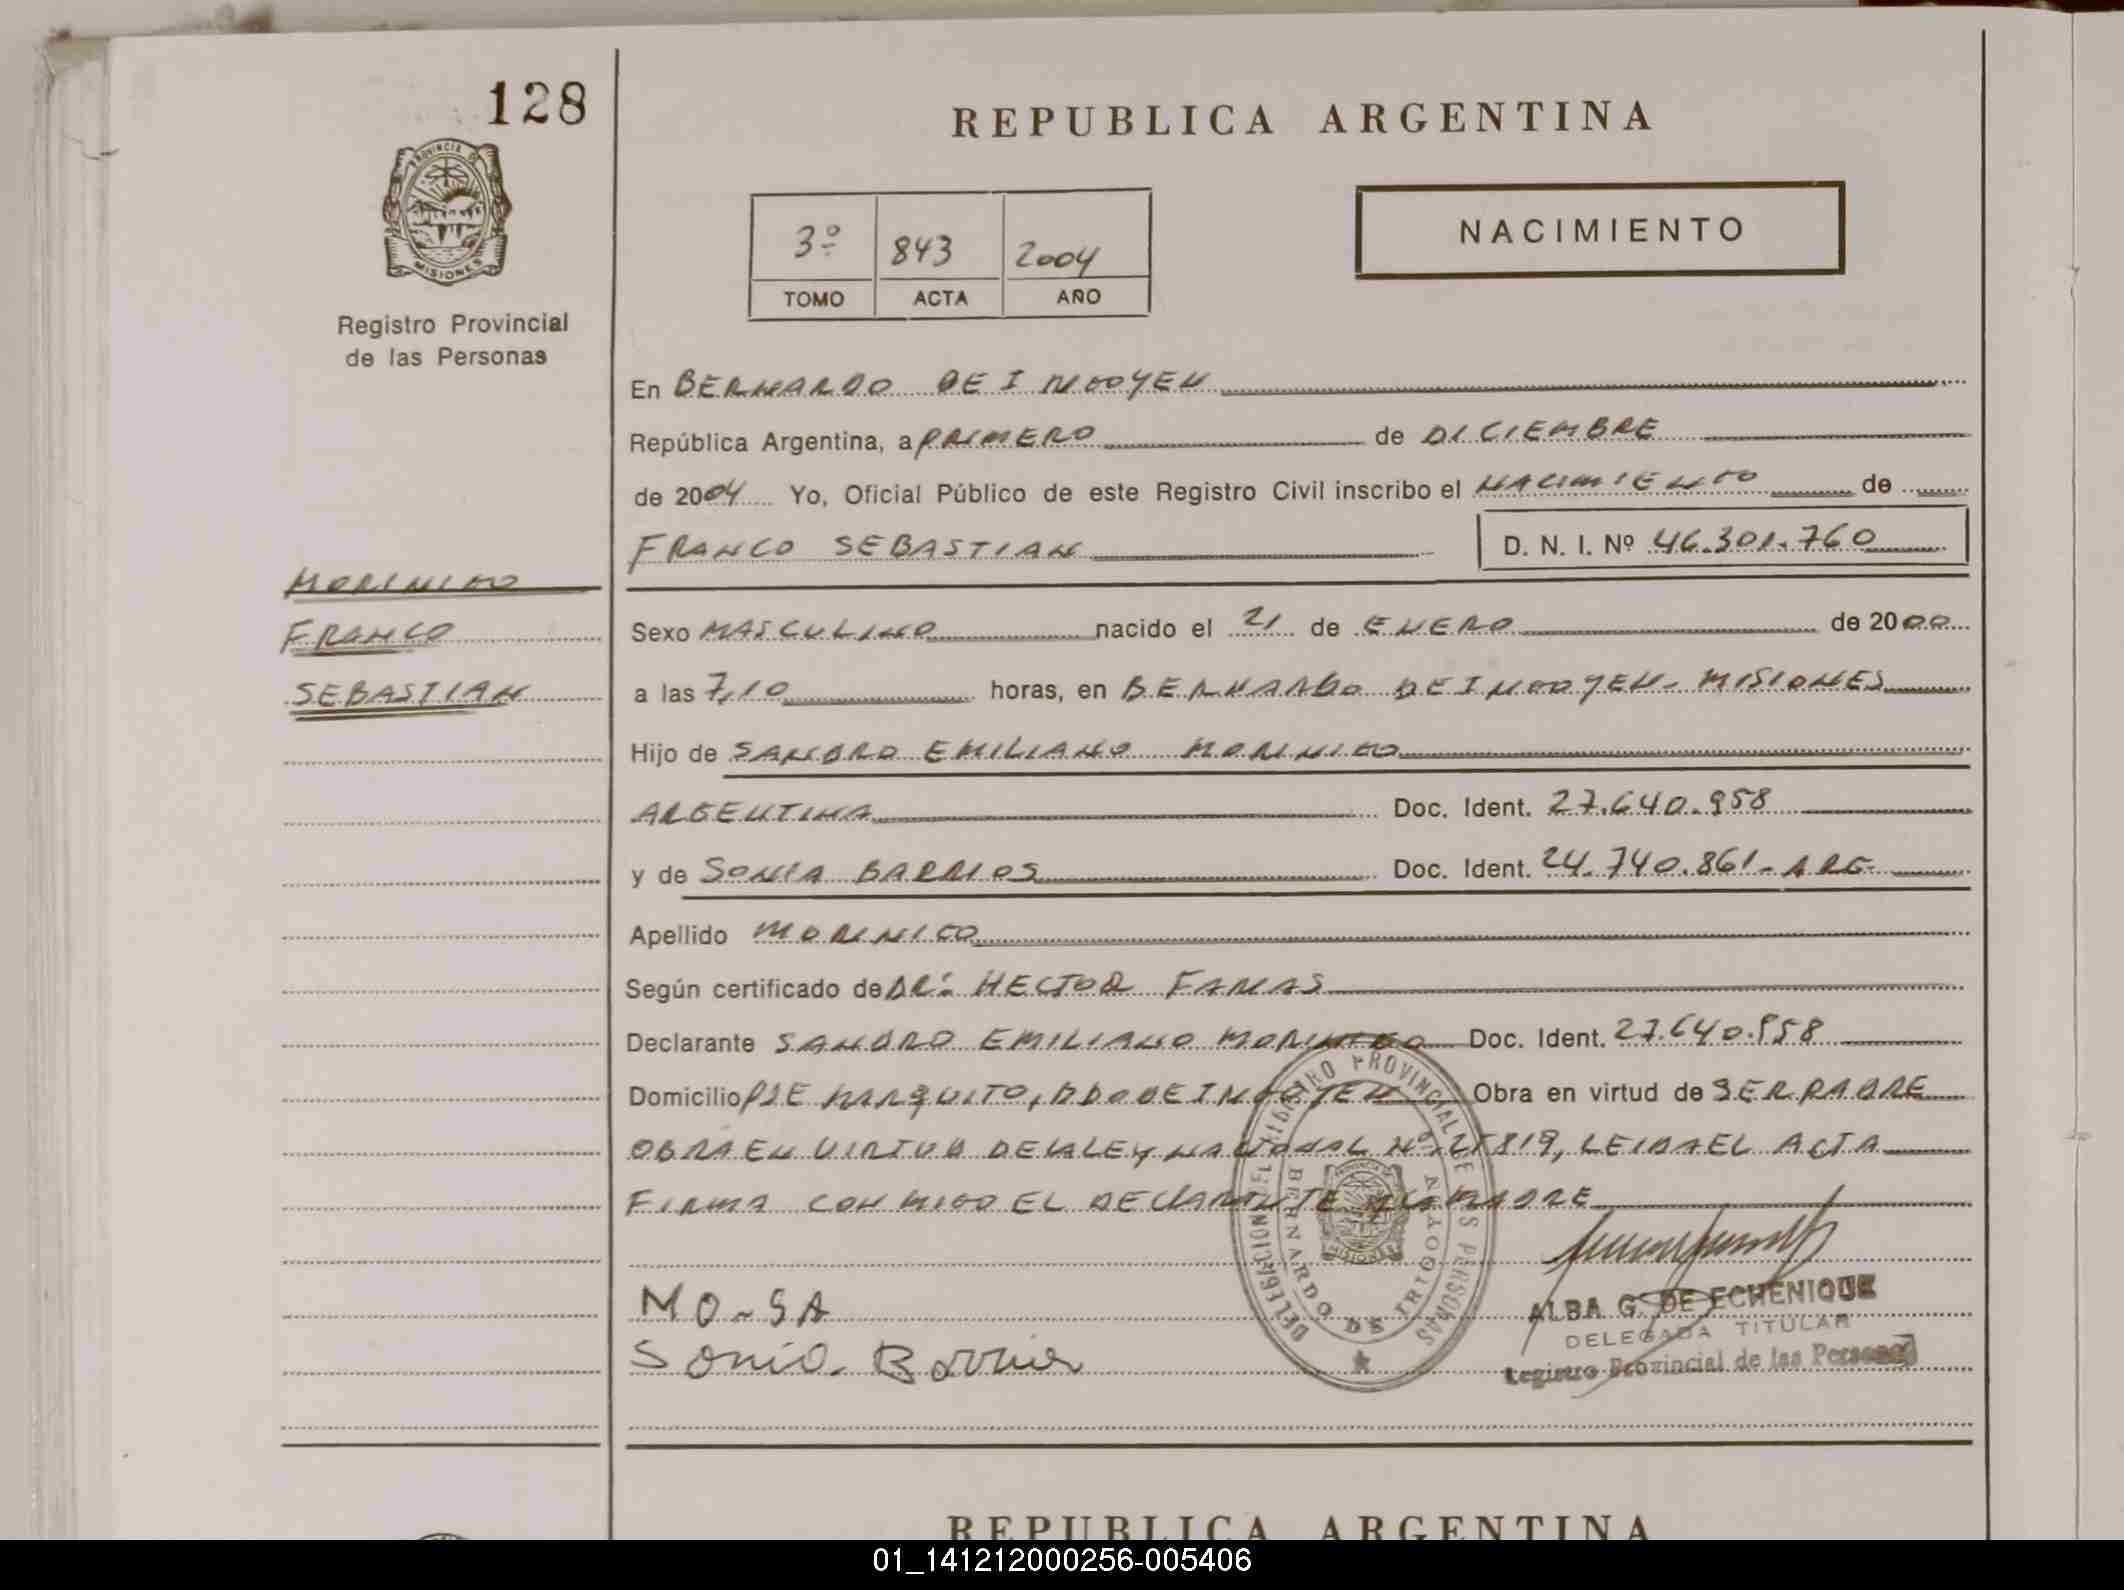 128
REPUBLICA ARGENTINA
PROVINCIA DE
MISIONES
Registro Provincial
de las Personas
3º 843 2004
TOMO ACTA AÑO
NACIMIENTO
En BERNARDO DE IRIGOYEN
República Argentina, a PRIMERO de DICIEMBRE
de 2004 Yo, Oficial Público de este Registro Civil inscribo el NACIMIENTO de
FRANCO SEBASTIAN D. N. I. Nº 46.301.760
MORINIGO
FRANCO
SEBASTIAN
Sexo MASCULINO nacido el 21 de ENERO de 2000
a las 7,10 horas, en BERNARDO DE IRIGOYEN - MISIONES
Hijo de SANDRO EMILIANO MORINIGO
ARGENTINA Doc. Ident. 27.640.958
y de SONIA BARRIOS Doc. Ident. 24.740.861 - ARG.
Apellido MORINIGO
Según certificado de DR. HECTOR FARIAS
Declarante SANDRO EMILIANO MORINIGO Doc. Ident. 27.640.958
Domicilio PJE MARQUITO, BDO DE IRIGOYEN Obra en virtud de SER PADRE
OBRA EN VIRTUD DE LA LEY NACIONAL Nº 25819, LEIDA EL ACTA
FIRMA CONMIGO EL DECLARANTE Y LA MADRE
DELEGACION DEL REGISTRO PROVINCIAL DE LAS PERSONAS
BERNARDO DE IRIGOYEN
PROVINCIA DE
MISIONES
MO-SA
Sonia Barrios
ALBA G. DE ECHENIQUE
DELEGADA TITULAR
Registro Provincial de las Personas
REPUBLICA ARGENTINA
01_141212000256-005406